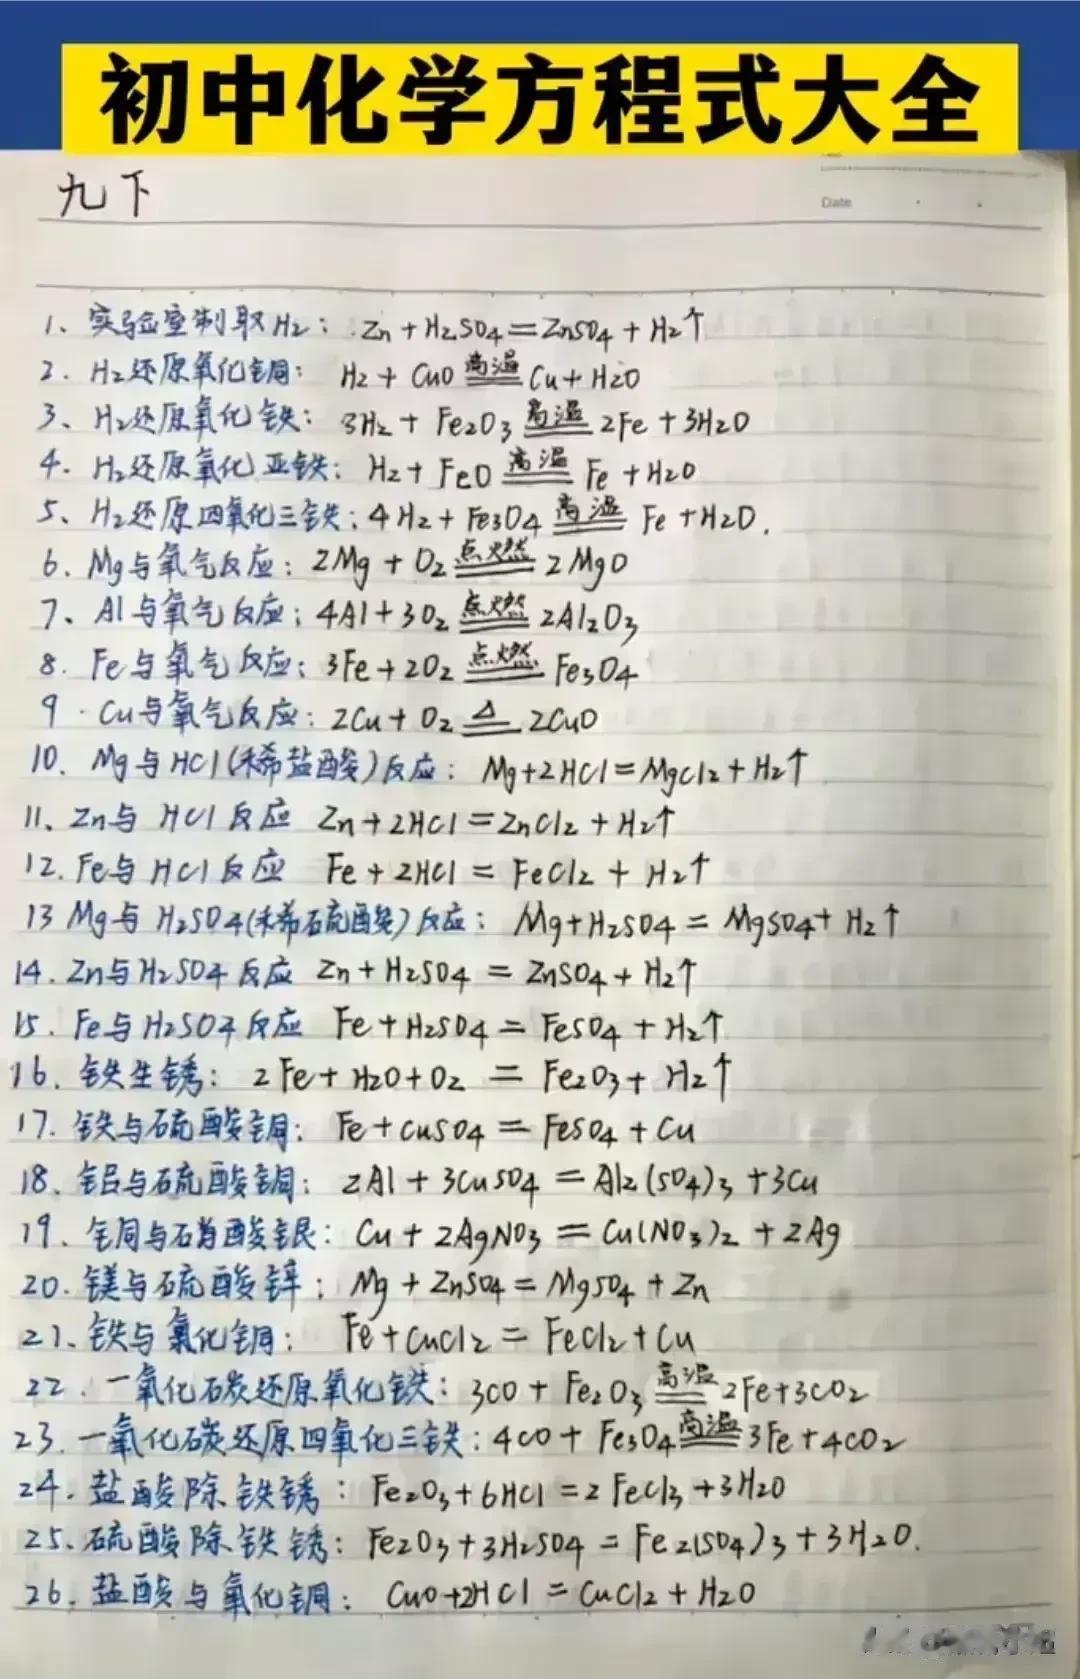 初中化学方程式大全
九下
Date
1、实验室制取H₂: Zn+H₂SO₄=ZnSO₄+H₂↑
2. H₂还原氧化铜: H₂+CuO 高温 Cu+H₂O
3、H₂还原氧化铁: 3H₂+Fe₂O₃ 高温 2Fe+3H₂O
4. H₂还原氧化亚铁: H₂+FeO 高温 Fe+H₂O
5、H₂还原四氧化三铁: 4H₂+Fe₃O₄ 高温 Fe+H₂O.
6、Mg与氧气反应: 2Mg+O₂ 点燃 2MgO
7、Al与氧气反应: 4Al+3O₂ 点燃 2Al₂O₃
8. Fe与氧气反应: 3Fe+2O₂ 点燃 Fe₃O₄
9. Cu与氧气反应: 2Cu+O₂ △ 2CuO
10. Mg与HCl(稀盐酸)反应: Mg+2HCl=MgCl₂+H₂↑
11、Zn与HCl反应 Zn+2HCl=ZnCl₂+H₂↑
12. Fe与HCl反应 Fe+2HCl=FeCl₂+H₂↑
13 Mg与H₂SO₄(稀硫酸)反应: Mg+H₂SO₄=MgSO₄+H₂↑
14. Zn与H₂SO₄反应 Zn+H₂SO₄=ZnSO₄+H₂↑
15. Fe与H₂SO₄反应 Fe+H₂SO₄=FeSO₄+H₂↑
16、铁生锈: 2Fe+H₂O+O₂=Fe₂O₃+H₂↑
17. 铁与硫酸铜: Fe+CuSO₄=FeSO₄+Cu
18、铝与硫酸铜: 2Al+3CuSO₄=Al₂(SO₄)₃+3Cu
19. 铜与硝酸银: Cu+2AgNO₃=Cu(NO₃)₂+2Ag
20. 镁与硫酸锌: Mg+ZnSO₄=MgSO₄+Zn
21. 铁与氯化铜: Fe+CuCl₂=FeCl₂+Cu
22. 一氧化碳还原氧化铁: 3CO+Fe₂O₃ 高温 2Fe+3CO₂
23. 一氧化碳还原四氧化三铁: 4CO+Fe₃O₄ 高温 3Fe+4CO₂
24. 盐酸除铁锈: Fe₂O₃+6HCl=2FeCl₃+3H₂O
25. 硫酸除铁锈: Fe₂O₃+3H₂SO₄=Fe₂(SO₄)₃+3H₂O.
26. 盐酸与氧化铜: CuO+2HCl=CuCl₂+H₂O